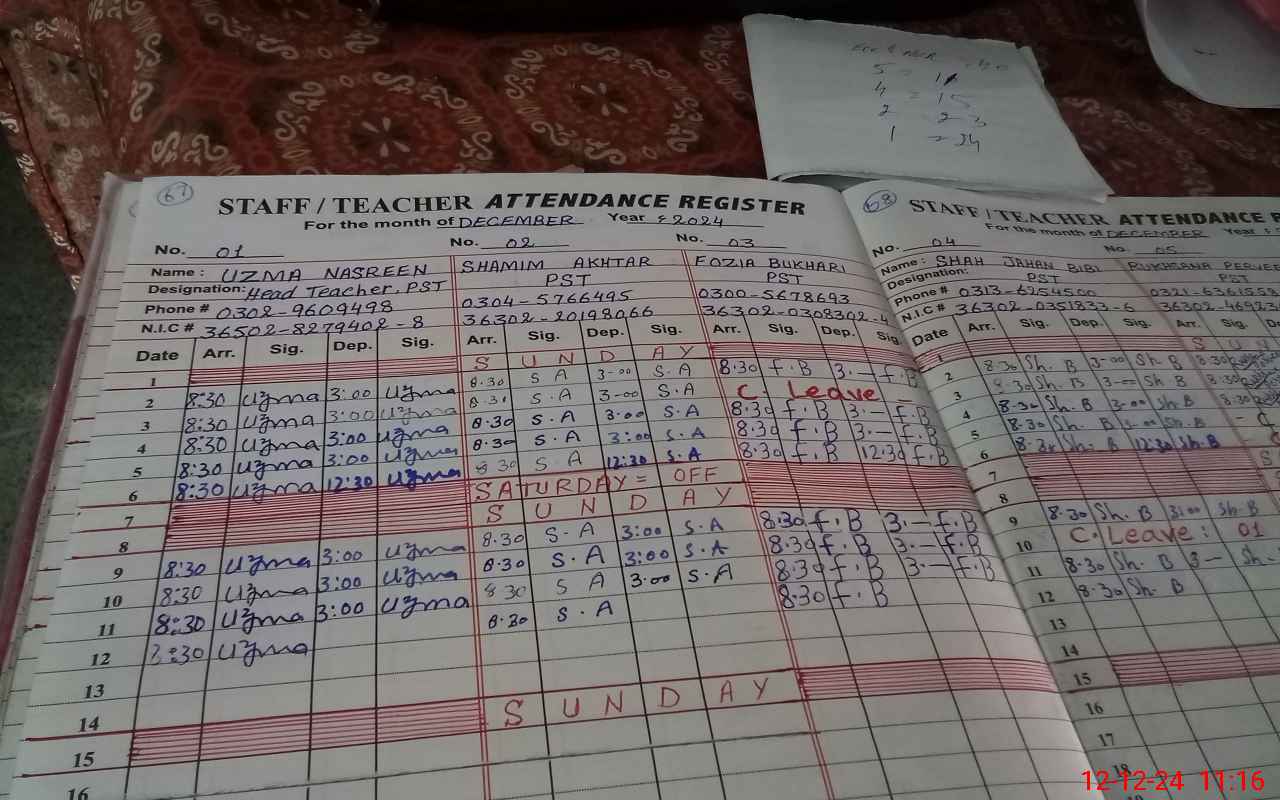 5 = 11
4 = 15
2 23
1 = 34
67
STAFF / TEACHER ATTENDANCE REGISTER
For the month of DECEMBER Year : 2024
No. 01 No. 02 No. 03
Name : UZMA NASREEN SHAMIM AKHTAR FOZIA BUKHARI
Designation: Head Teacher, PST PST PST
Phone # 0302-9609498 0304-5766495 0300-5678693
N.I.C # 36502-8279402-8 36302-20198066 36302-0308302-
Date Arr. Sig. Dep. Sig. Arr. Sig. Dep. Sig. Arr. Sig. Dep. Sig.
1 S U N D A Y
2 8:30 Uzma 3:00 Uzma 8.30 S A 3-00 S.A 8.30 f.B 3.— f.B
3 8:30 Uzma 3:00 Uzma 8.30 S.A 3-00 S.A C. Leave –
4 8:30 Uzma 3:00 Uzma 8.30 S.A 3.00 S.A 8.30 f.B 3.— f.B
5 8:30 Uzma 3:00 Uzma 8.30 S.A 3:00 S.A 8.30 f.B 3.— f.B
6 8:30 Uzma 12:30 Uzma 8 30 S.A 12:30 S.A 8.30 f.B 12.30 f.B
7 SATURDAY = OFF
8 S U N D A Y
9 8:30 Uzma 3:00 Uzma 8.30 S.A 3:00 S.A 8.30 f.B 3.— f.B
10 8:30 Uzma 3:00 Uzma 8.30 S.A 3:00 S.A 8.30 f.B 3.— f.B
11 8:30 Uzma 3:00 Uzma 8 30 S A 3.00 S.A 8.30 f.B 3.— f.B
12 8:30 Uzma 8.30 S.A 8.30 f.B
13
14
15 S U N D A Y
16
68
STAFF / TEACHER ATTENDANCE R
For the month of DECEMBER Year :
No. 04 No. 05
Name : SHAH JAHAN BIBI RUKHSANA PERVE
Designation: PST PST
Phone # 0313-6254500 0321-6361558
N.I.C # 36302-0351833-6 36302-46923
Date Arr. Sig. Dep. Sig. Arr. Sig.
1 S U N
2 8.30 Sh. B 3-00 Sh. B 8.30
3 8.30 Sh. B 3-00 Sh. B 8.30
4 8.30 Sh. B 3-00 Sh. B 8.30
5 8.30 Sh. B 3.00 Sh. B
6 8.30 Sh. B 12.30 Sh. B
7
8
9 8.30 Sh. B 3:00 Sh. B
10 C. Leave : 01
11 8.30 Sh. B 3—
12 8.30 Sh. B
13
14
15
16
17
18
12-12-24 11:16